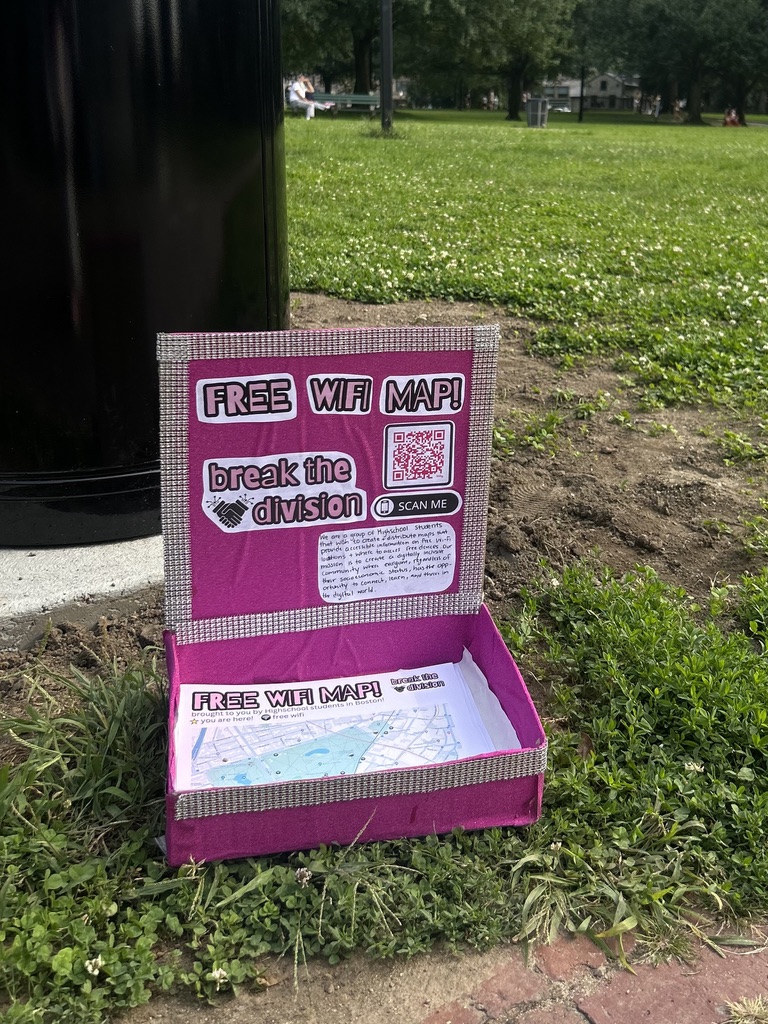 FREE WIFI MAP!
break the
division
SCAN ME
We are a group of Highschool students
that wish to create + distribute maps that
provide accessible information on free Wi-Fi
locations + where to access free devices. Our
mission is to create a digitally inclusive
community where everyone, regardless of
their socioeconomic status, has the opp-
ortunity to connect, learn, and thrive in
the digital world.
FREE WIFI MAP!
break the
division
brought to you by Highschool students in Boston!
you are here! free wifi